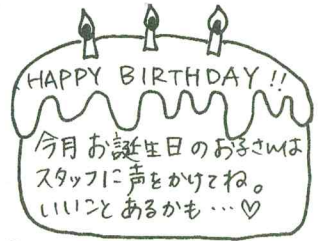 HAPPY BIRTHDAY!!
今月お誕生日のお子さんは
スタッフに声をかけてね。
いいことあるかも…♡